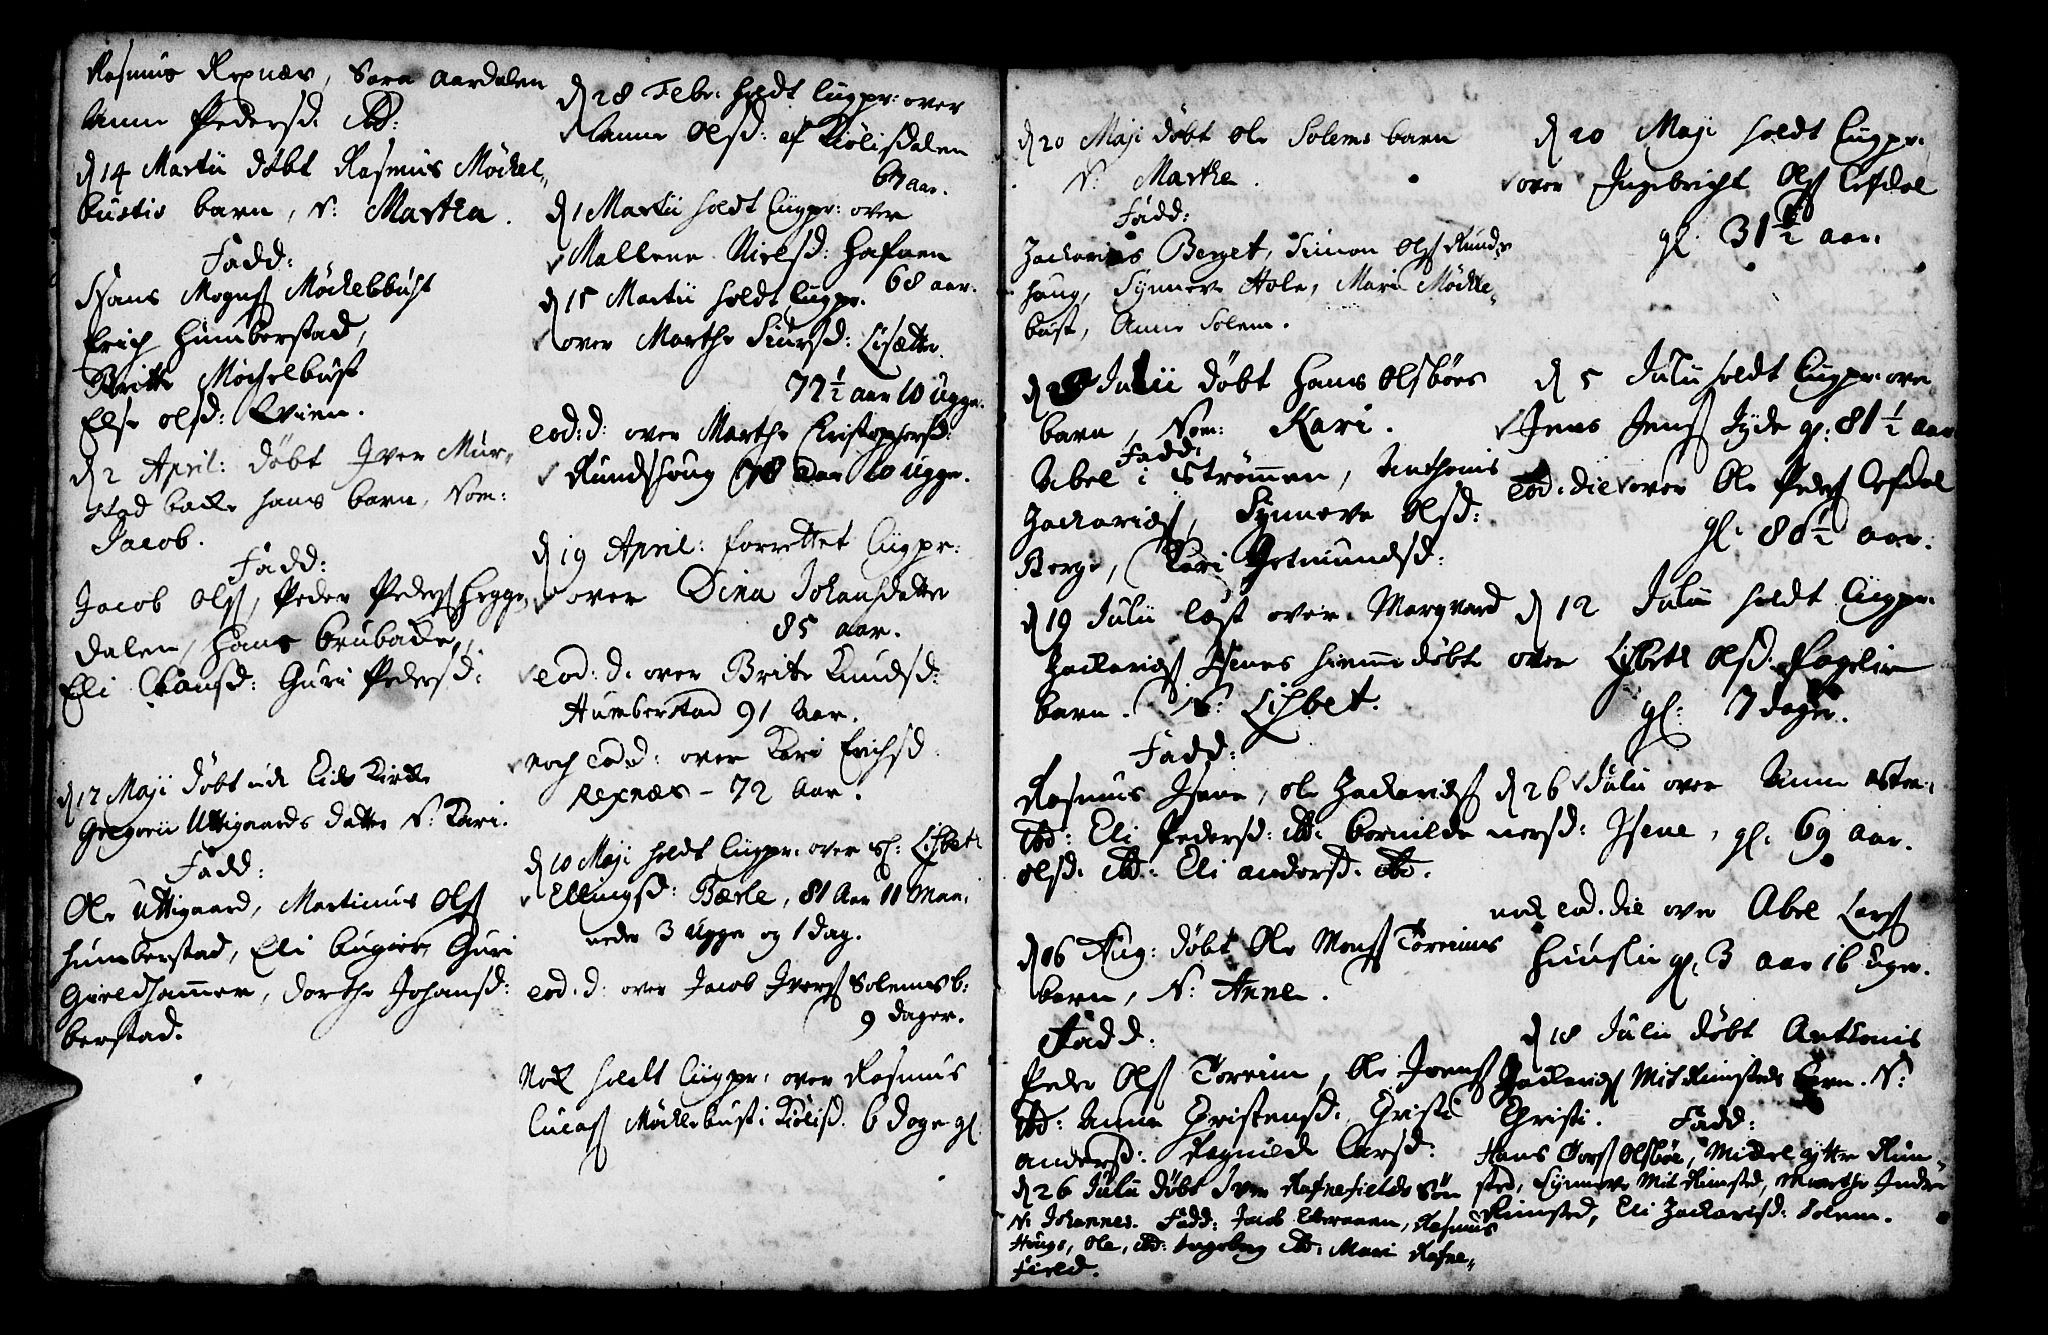 Rasmus Rexnæs, Sara Aardalen
Anne Pedersd. ibd:
d 14 Martii døbt Rasmus Möckel-
bustis barn, N: Martha.
Fadd:
Hans Mogens Möckelbust
Erich Humberstad,
Britte Möchelbust
Else Olsd: Lvien.
d 2 April: döbt Iver Mur-
stad backe hans barn, Nom:
Jacob.
Fadd:
Jacob Ols, Peder Peders Hegge
dalen, Hans Brubacke,
Eli Hansd: Guri Pedersd:
d 12 Maji döbt udi Eids Kircke
Gregorii Uttigaards datter N: Kari.
Fadd:
Ole Uttigaard, Martinus Ols
Humberstad, Eli Bugier, Guri
Gieldhammer, Dorthe Johansd:
berstad.
d 28 Febr: holdt Liigpr: over
Anne Olsd: af Kiölsdalen
67 aar.
d 1 Martii holdt Liigpr: over
Mallene Nielsd: Hafnen
68 aar.
d 15 Martii holdt Liigpr.
over Marthe Siursd: Lisætter.
77½ aar 10 Uger.
eod: d: over Marthe Christophersd:
Rundshoug 78 Aar 10 Uger.
d 19 April: forrettet Liigpr:
over Dina Johansdatter
85 aar.
eod: d. over Brite Knudsd:
Humberstad 91 Aar.
noch eod d: over Kari Erichsd.
Rexnæs - 72 Aar.
d 10 Maji holdt Liigpr: over Sl: Lisbet
Ellingsd: Bærle, 81 Aar 11 Maa-
neder 3 Uger og 1 dag.
eod: d: over Jacob Ivers Solemsb:
9 dager.
Nok holdt Liigpr: over Rasmus
Lucas Möcklebust i Kiölsd. 6 dage gl.
d 20 Maji döbt Ole Solems barn
N: Marthe.
Fadd:
Zacharias Berget, Simon Ols Runds-
houg, Synneve Hole, Mari Möckle-
bust, Anne Solem.
d Julii döbt Hans Olsböes
barn, Nom: Kari.
Fadd:
Abel i Strømmen, Anthonis
Zacharids, Synneve Olsd:
Berge, Kari Gotmundsd:
d 19 Julii læst over Marqvard
Zacharids Isenes hiemme döbte
barn. N: Lisbet.
Fadd:
Rasmus Isene, Ole Zacharids
ibd: Eli Pedersd: ibd. Bornilde
Olsd. ibd: Eli Andersd. ibd.
d 16 Aug: döbt Ole Mons Toreims
barn, N: Anne.
Fadd:
Peder Ols Toreim, Ole Joens
ibd: Anne Christensd. Christi
Andersd: Ragnilde Larsd:
d 26 Julii döbt Iver Rafnefields Søn
N: Johannes. Fadd: Jacob, Rasmus
Houge, Ole, ibd: Ingeborg ibd: Mari Rafne-
field.
d 20 Maji holdt Liigpr.
over Ingebricht Ols Lefdal
gl. 31½ aar.
d 5 Julii holdt Liigpr. over
Jens Jens Jyde gl: 81½ aar
Eod: die over Ole Peders Lefdal
gl. 86½ aar.
d 12 Julii holdt Liigpr.
over Lisbeth Olsd. Fagelie
gl: 7 dage.
d 26 Julii over Anne Aste-
nersd: Isene, gl. 69 aar.
nok eod. die over Abel Lars
Hunslii gl. 3 aar 16 uger.
d 18 Julii döbt Anthonis
Zacharids Mit Rimsteds barn. N:
Christi. Fadd:
Hans Tors Olsböe, Mickel Rim-
sted, Synneve Mit Rimsted, Marthe Indre
Rimsted, Eli Zacharisd: Solem.